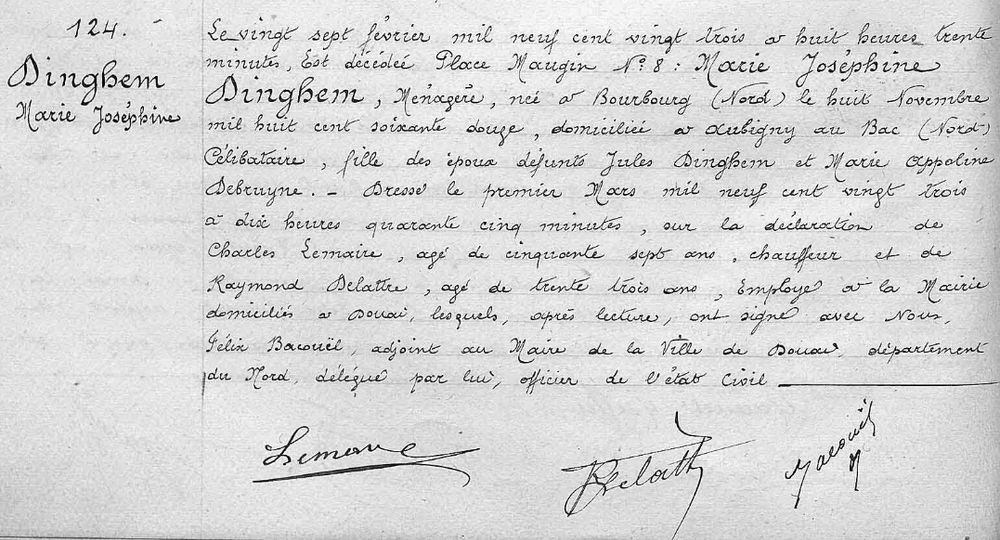 124.
Dinghem
Marie Joséphine
Le vingt sept février mil neuf cent vingt trois à huit heures trente
minutes, Est décédée Place Maugin N° 8 : Marie Joséphine
Dinghem, Ménagère, née à Bourbourg (Nord) le huit Novembre
mil huit cent soixante douze, domiciliée à Aubigny au Bac (Nord)
Célibataire, fille des époux défunts Jules Dinghem et Marie Appoline
Debruyne. - Dressé le premier Mars mil neuf cent vingt trois
à dix heures quarante cinq minutes, sur la déclaration de
Charles Lemaire, agé de cinquante sept ans, chauffeur et de
Raymond Delattre, agé de trente trois ans, Employé à la Mairie
domiciliés à Douai, lesquels, après lecture, ont signé avec Nous,
Félix Bacouël, adjoint au Maire de la Ville de Douai, département
du Nord, délégué par lui, officier de l'état Civil
Lemaire
RDelattre
Bacouël